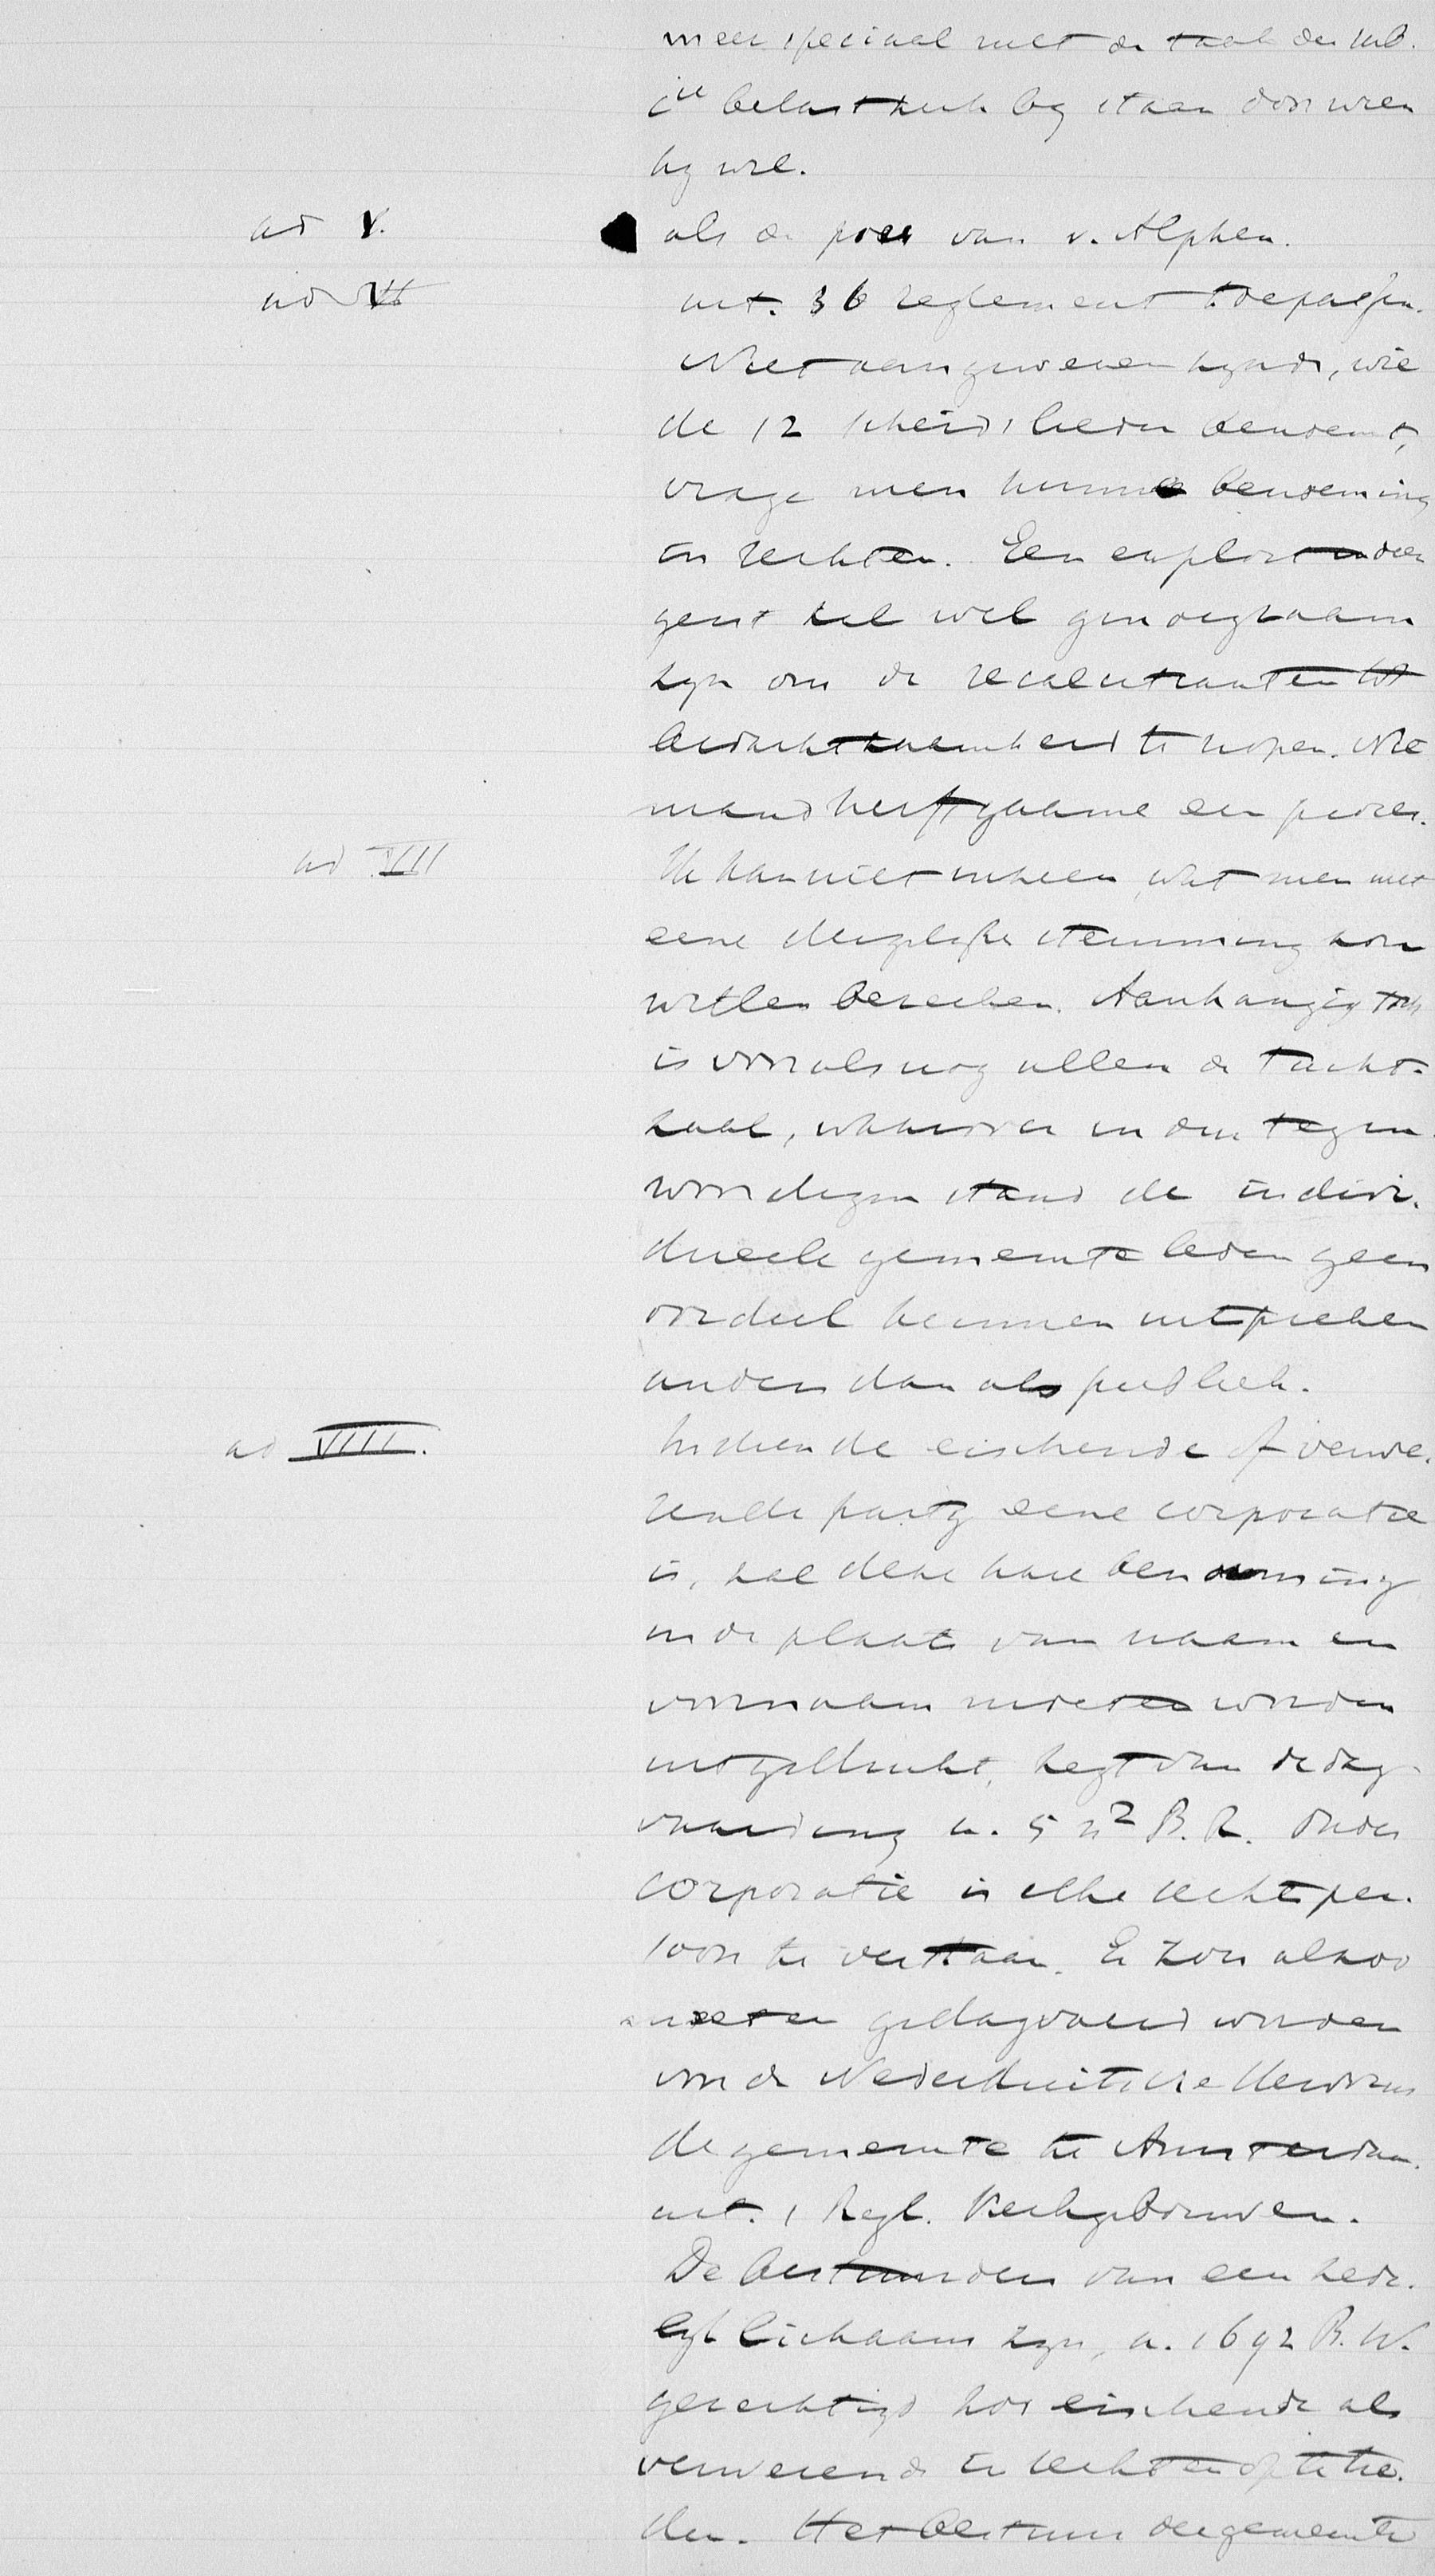 meer speciaal met de taak der sub.
cie belast zich bystaan door wien
hy wil.
ad V. als de poes van v. Alphen.
ad VI art. 36 reglement toepassen.
Niet aangewezen zynde, wie
de 12 scheidslieden benoemt,
vrage men hunne benoeming
in rechten. Een exploit in dien
geest zal wel genoegzaam
zyn om de recalcitranten tot
bedachtzaamheid te nopen. Nie
mand heeft gaarne een proces.
ad VII Ik kan niet inzien, wat men met
eene dergelyke stemming zou
willen bereiken. Aanhangig toch
is vooralsnog alleen de tacht-
zaak, waarover in den tegen-
woordigen stand de indivi-
dueele gemeenteleden geen
oordeel kunnen uitspreken
anders dan als publiek.
ad VIII. Indien de eischende of verwe-
rende party eene corporatie
is, zal deze hare benoeming
in de plaats van naam en
voornaam moeten worden
uitgedrukt, zegt van de dag-
vaarding a. 5 n 2 B. R. Onder
corporatie is elke rechtsper-
soon te verstaan. Er zou alzoo
moeten gedagvaard worden
voor de Nederduitsche Hervorm
de gemeente te Amsterdam.
art. 1 Regl. Kerkgebouwen.
De bestuurders van een zede-
lyk lichaam zyn, a. 1692 B. W.
gerechtigd zoo eischende als
verwerende in rechten op te tre-
den. Het bestuur der gemeente